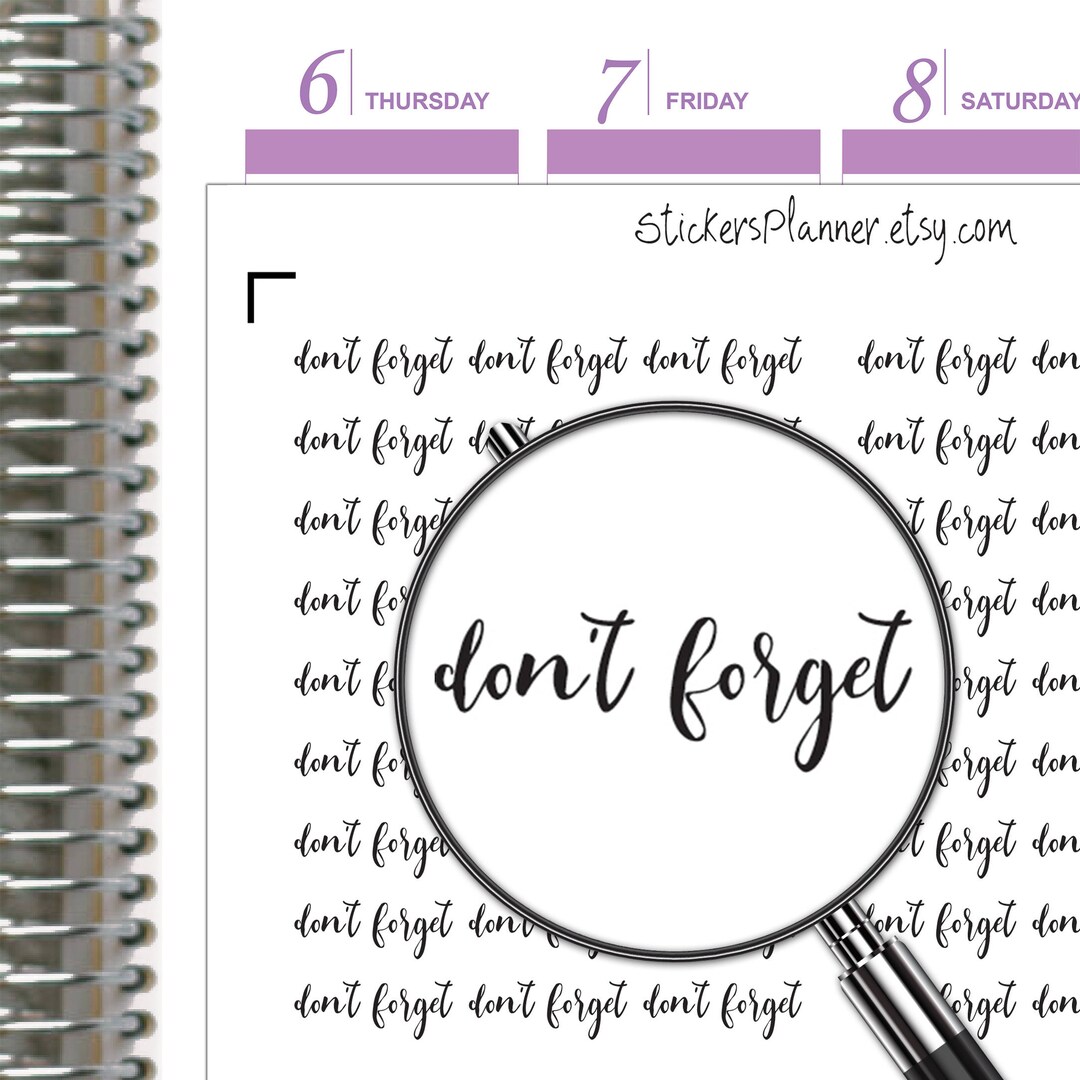 6 THURSDAY 7 FRIDAY 8 SATURDAY
StickersPlanner.etsy.com
don't forget don't forget don't forget don't forget don
don't forget don't forget don
don't forget forget don
don't forget don
don't don
don't forget don
don't forget forget don
don't forget don't don't forget don
don't forget don't forget don't forget forget don
don't forget